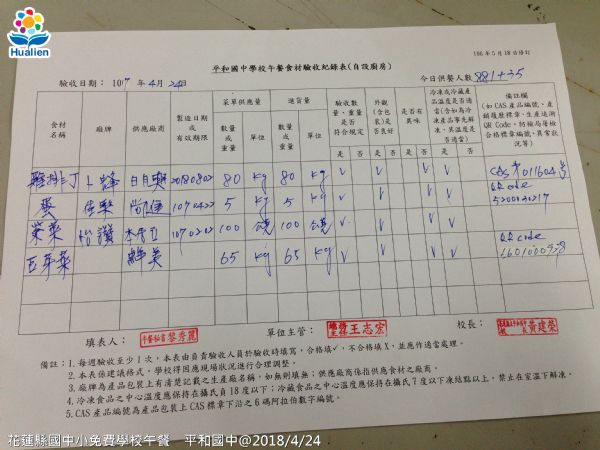 Hualien
106年5月18日修訂
平和國中學校午餐食材驗收紀錄表(自設廚房)
驗收日期：107年4月24日
今日供餐人數881+35
食材名稱 廠牌 供應廠商 製造日期或有效期限 菜單供應量 進貨量 驗收數量、重量是否符合規定 外觀(含包裝)是否良好 是否有異味 冷凍或冷藏產品溫度是否適當(含如為冷凍產品事先解凍，其溫度是否適當) 備註欄(如CAS產品編號、產銷履歷標章、生產追溯QR Code、防檢局屠檢合格標章編號、異常狀況等)
數量或重量 單位 數量或重量 單位
是 否 是 否 是 否 是 否
雞排丁 卜蜂 20180802 80 kg 80 kg V V V V CAS 011604號
蛋 1070422 5 kg 5 kg V V V QR code
紫菜 1070202 100 100 V V V
豆芽菜 65 kg 65 kg V V V QR code
填表人： 午餐秘書黎秀麗
單位主管： 王志宏
校長： 黃建榮
備註：1.每週驗收至少1次，本表由負責驗收人員於驗收時填寫，合格填v，不合格填X，並應作適當處理。
2.本表係建議格式，學校得因應現場狀況進行合理調整。
3.廠牌為產品包裝上有清楚記載之生產廠名稱，如無則填無；供應廠商係指供應食材之廠商。
4.冷凍食品之中心溫度應保持在攝氏負18度以下；冷藏食品之中心溫度應保持在攝氏7度以下凍結點以上，禁止在室溫下解凍。
5.CAS產品編號為產品包裝上CAS標章下沿之6碼阿拉伯數字編號。
花蓮縣國中小免費學校午餐 平和國中@2018/4/24